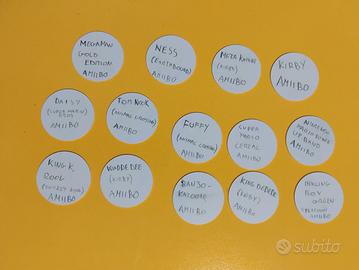 MEGAMAN
(GOLD
EDITION
AMIIBO
NESS
(EARTHBOUND)
AMIIBO
META KNIGHT
(KIRBY)
AMIIBO
KIRBY
AMIIBO
DAISY
(SUPER MARIO
AMIIBO
TOM NOOK
(ANIMAL CROSSING)
AMIIBO
FUFFY
(ANIMAL CROSSING)
AMIIBO
SUPER
MARIO
CEREAL
AMIIBO
NINTENDO
POWER
UP BAND
AMIIBO
KING K.
ROOL
AMIIBO
WADDLE DEE
(KIRBY)
AMIIBO
BANJO-
KAZOOIE
AMIIBO
KING DEDEDE
(KIRBY)
AMIIBO
GREEN
AMIIBO
subito